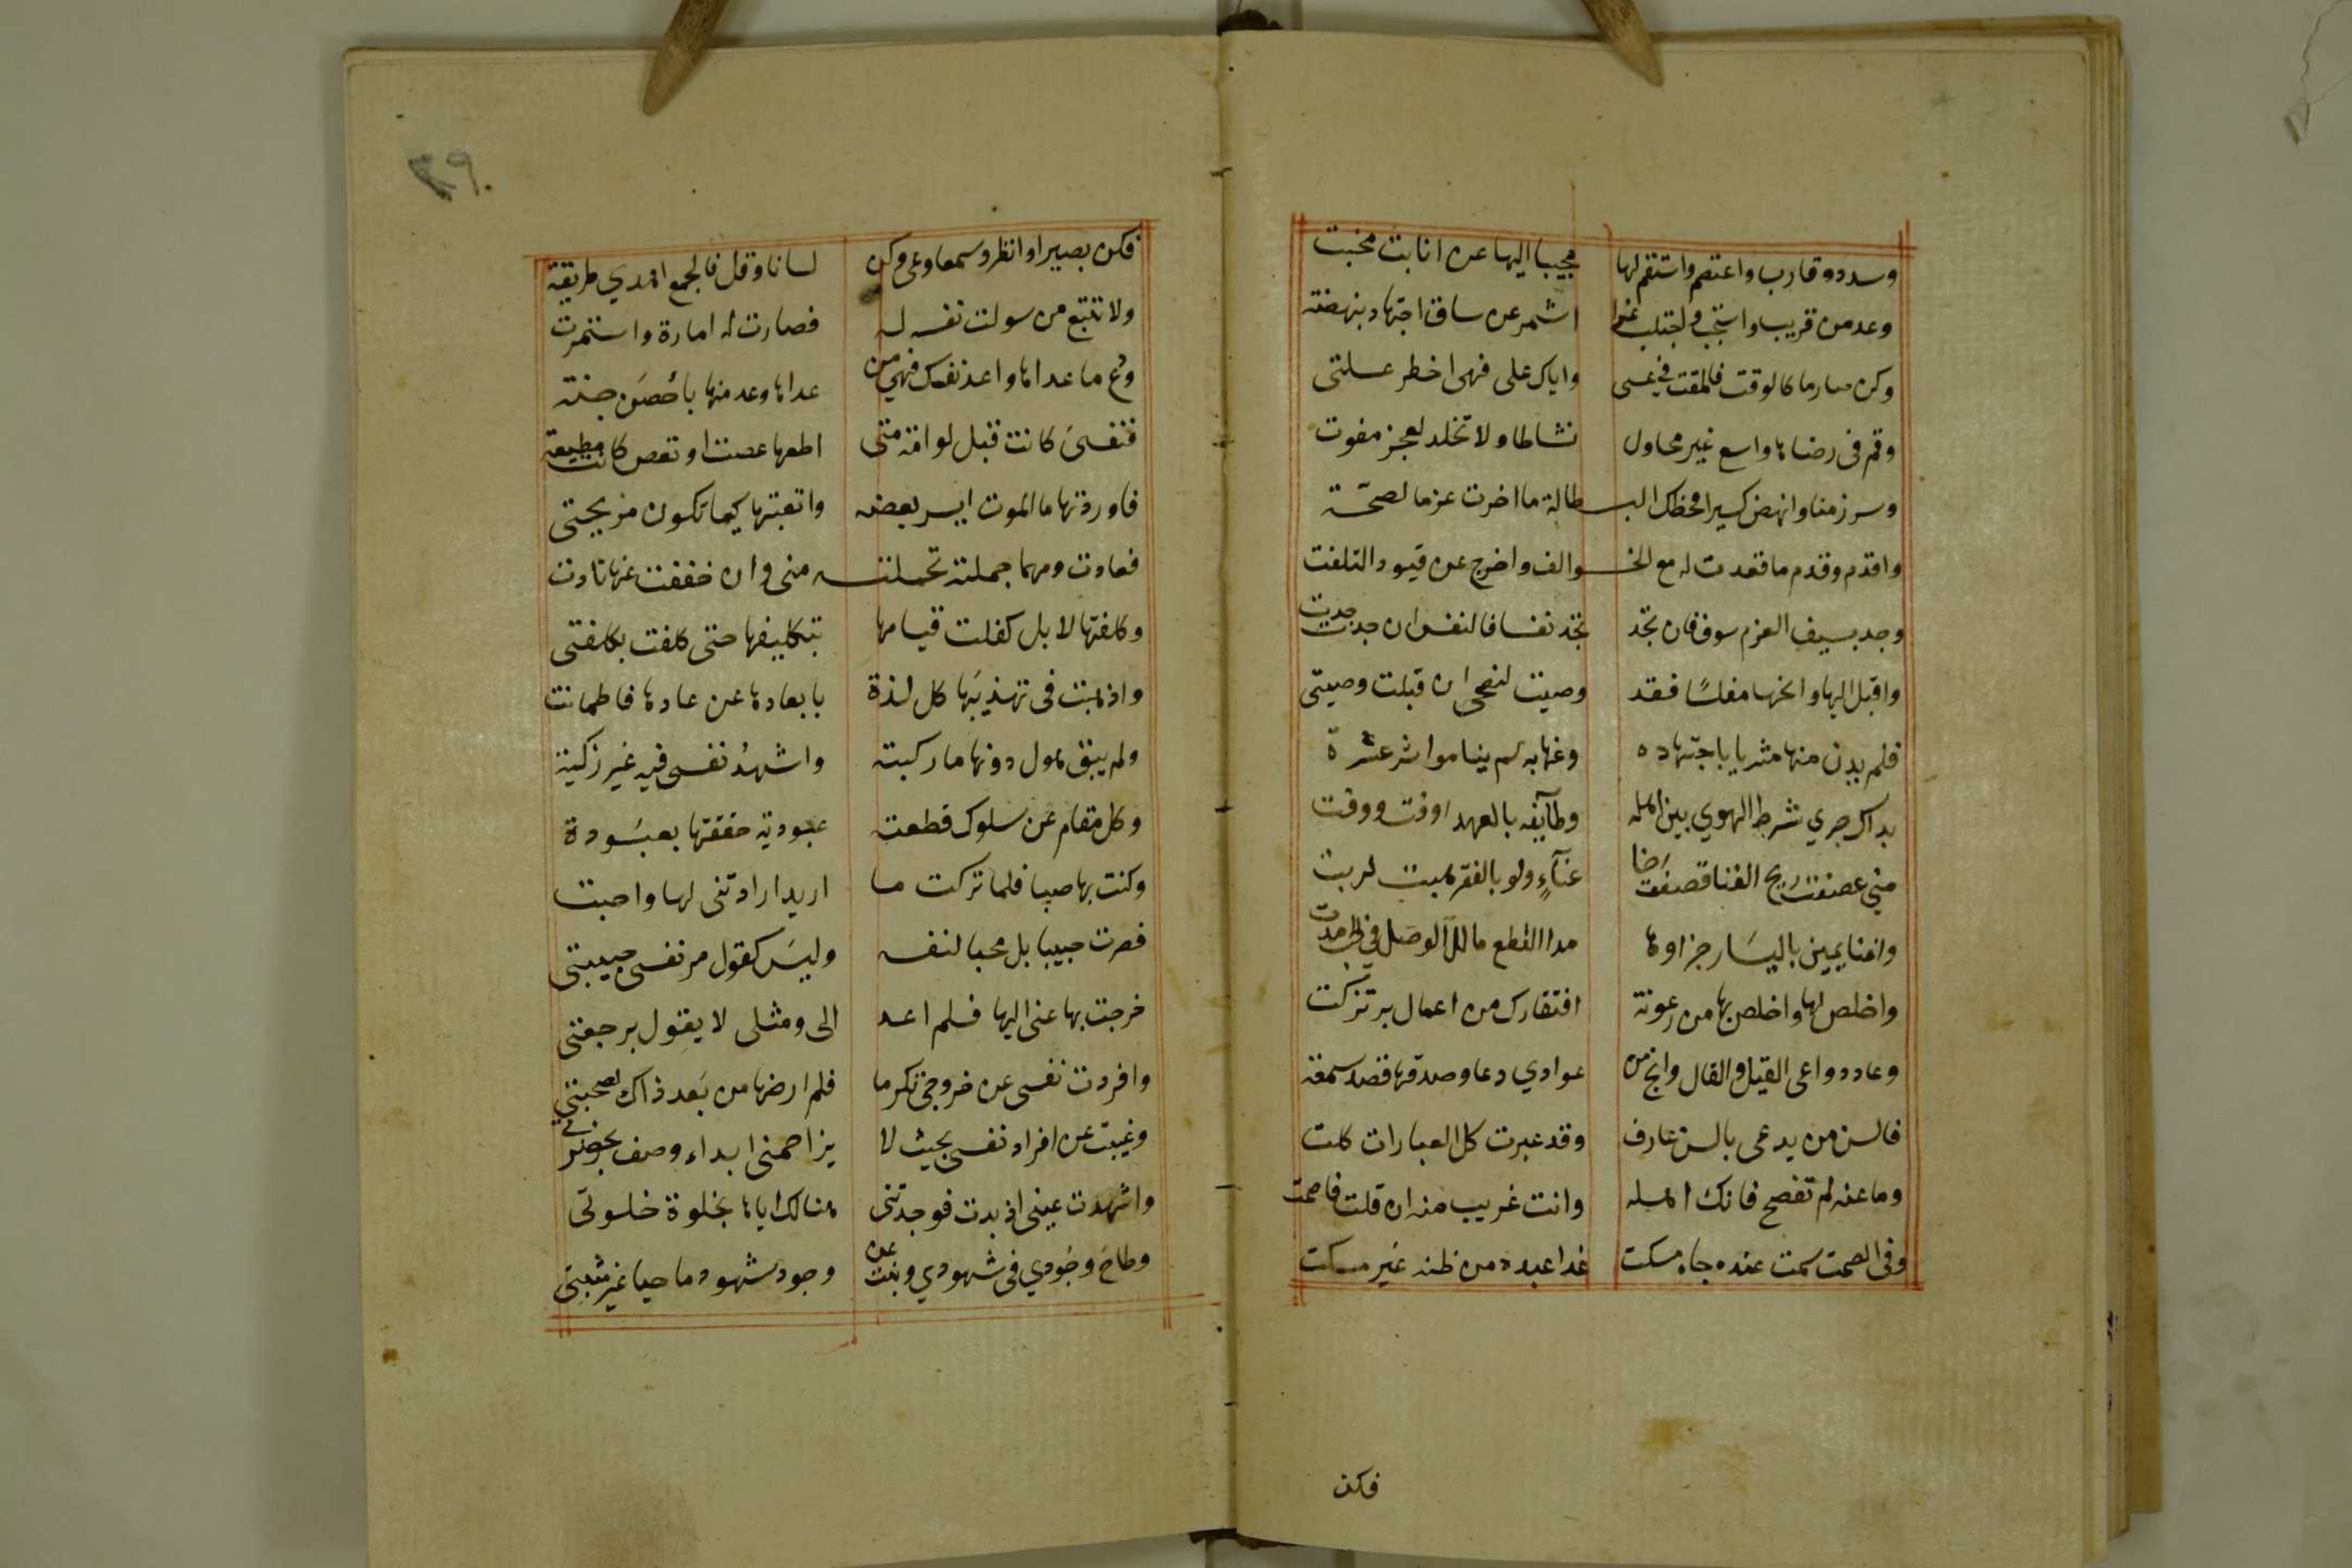 وسدد وقارب واعتصم واستقم لها مجيبا اليها عن انابت مخبت
وعد من قريب واستجب واجتنب غدا اشمر عن ساق اجتهاد بنهضة
وكن صارما كالوقت فالمقت في عسى واياك على فهى اخطر علتى
وقم فى رضاها واسع غير محاول نشاطا ولا تخلد لعجز مفوت
وسر زمنا وانهض كسيرا فحظك البطالة ما اخرت عزما لصحة
واقدم وقدم ما قعدت له مع الخوالف واخرج عن قيود التلفت
وجد بسيف العزم سوف فان تجد تجد نفسا فالنفس ان جدت جدت
واقبل اليها وانحها مفلسًا فقد وصيت لنصحى ان قبلت وصيتى
فلم يدن منها مثريا باجتهاده وعنها به لم ينا موثر عشرة
بداك جرى شرط الهوي بين اهله وطآيفه بالعهد اوفت ووفت
متي عصفت ريح الغنا قصفت اخا غنآءٍ ولو بالفقر هبت لربت
واغنا يمين باليسَار جزاوها مدا القطع ما للوصل في الحب مدت
واخلص لها واخلص بها من رعونة افتقارك من اعمال بر تزكت
وعاد دواعى القيل والقال وانج من عوادي دعا وصدقها قصد سمعة
فالسن من يدعى بالسن عارف وقد عبرت كل العبارات كلت
وما عنه لم تفصح فانك اهله وانت غريب منه ان قلت فاصمت
وفى الصمت سمت عنده جاه مسكت غدا عبده من ظنه غير مسكت
فكن
٣٩
فكن بصيرا وانظر وسمعا وعى وكن لسانا وقل فالجمع اهدي طريقة
ولا تتبع من سولت نفسه له فصارت له امارة واستمرت
ودع ما عداها واعد نفسك فهي من عداها وعد منها باحصَن جنة
فنفسىَ كانت قبل لوامة متى اطعها عصت او تعص كانت مطيعة
فاوردتها ما الموت ايسر بعضه واتعبتها كيما تكون مريحتى
فعادت ومهما حملته تحملته منى وان خففت عنها تادت
وكلفتها لا بل كفلت قيامها بتكليفها حتى كلفت بكلفتى
واذهبت فى تهذيبَها كل لذة بابعادها عن عادها فاطمانت
ولم يبق هول دونها ما ركبته واشهدُ نفسى فيه غير زكية
وكل مقام عن سلوك قطعته عبودية حققتها بعبَودة
وكنت بها صبا فلما تركت ما اريد ارادتنى لها واحبت
فصرت حبيبا بل محبا لنفسه وليسَ كقول مر نفسى حبيبتى
خرجت بها عنى اليها فلم اعد الى ومثلى لا يقول برجعتى
وافردت نفسى عن خروجى تكرما فلم ارضها من بَعد ذاك لصحبتي
وغيبت عن افراد نفسى بحيث لا يزاحمنى ابداء وصف بحضرتي
واشهدت عينى اذ بدت فوجدتنى هنالك اياها بخلوة خلوتى
وطاح وجُودي فى شهودي وبنت عن وجود شهود ماحيا غير مثبتى